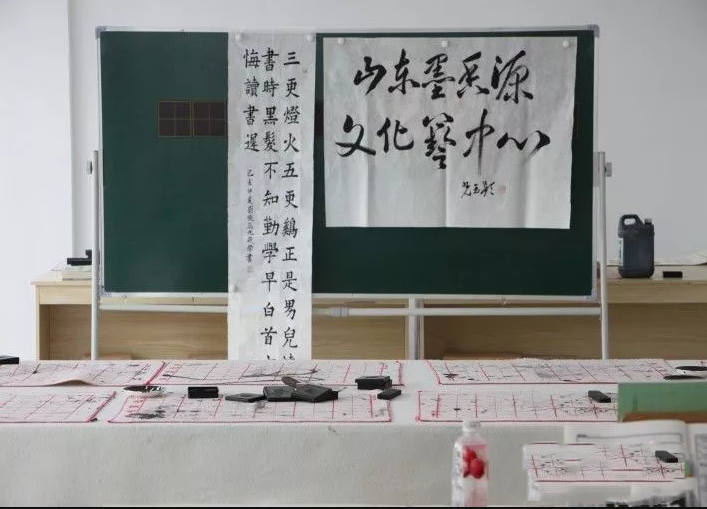 三更燈火五更鷄正是男兒
書時黑髮不知勤學早白首
悔讀書遲
山东墨香源
文化藝中心